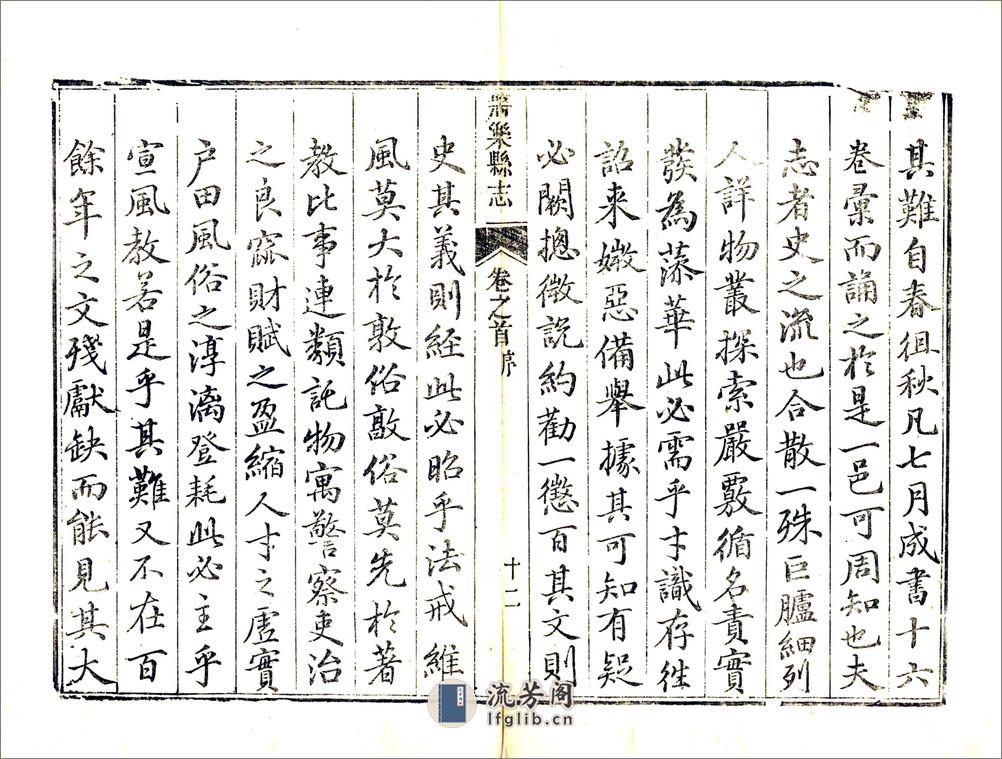 其難自春徂秋凡七月成書十六
卷彙而誦之於是一邑可周知也夫
志者史之流也合散一殊巨臚細列
人詳物叢探索嚴覈循名責實
發為藻華此必需乎才識存往
詔来媺惡備舉據其可知有疑
必闕揔徵説約勸一懲百其文則
肅寧縣志
卷之首
序
十二
史其義則経此必昭乎法戒維
風莫大於敦俗敦俗莫先於著
教比事連類託物寓警察吏治
之良窳財賦之盈縮人才之虛實
户田風俗之淳漓登耗此必主乎
宣風教若是乎其難又不在百
餘年之文殘獻缺而能見其大
流芳阁
lfglib.cn